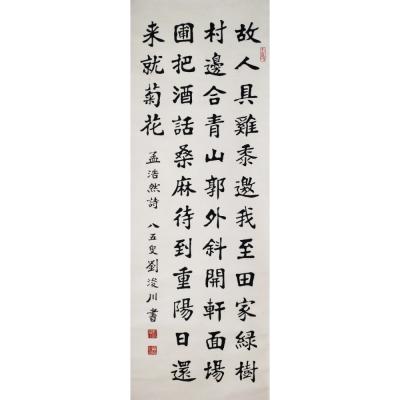 故人具雞黍邀我至田家綠樹
村邊合青山郭外斜開軒面場
圃把酒話桑麻待到重陽日還
來就菊花
孟浩然詩 八五叟劉浚川書